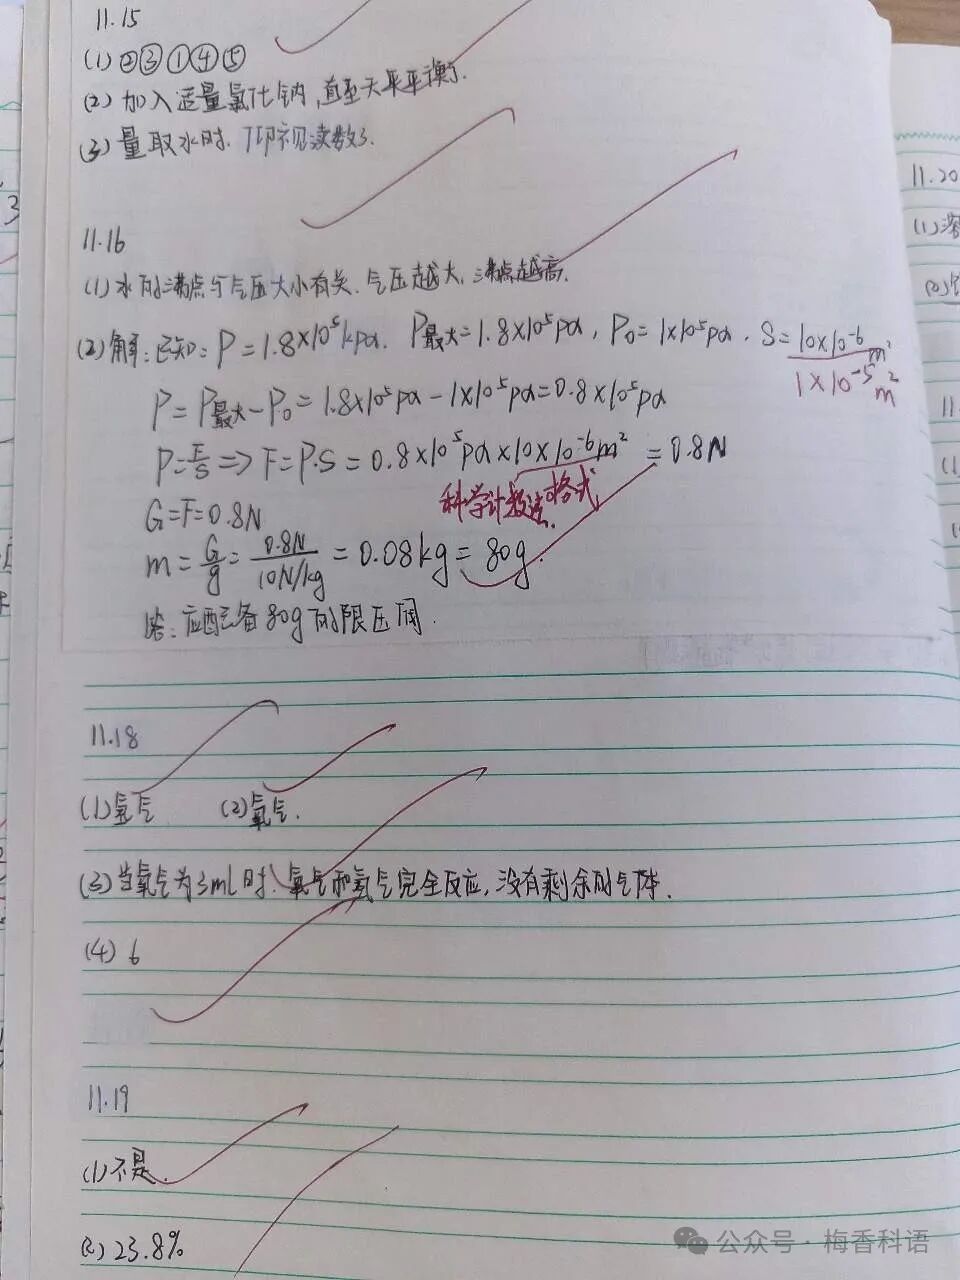 11.15
(1) ②③①④⑤
(2) 加入适量氯化钠,直至天平平衡了.
(3) 量取水时.仰视读数了.
11.16
(1) 水的沸点与气压大小有关.气压越大,沸点越高.
(2) 解:已知:P=1.8×10⁵kpa. P最大=1.8×10⁵pa, P₀=1×10⁵pa. S=10×10⁻⁶m²
1×10⁻⁵m²
P=P最大-P₀=1.8×10⁵pa-1×10⁵pa=0.8×10⁵pa
P=F/S⇒F=P·S=0.8×10⁵pa×10×10⁻⁶m²=0.8N
科学计数法格式.
G=F=0.8N
m=G/g=0.8N/10N/kg=0.08kg=80g.
答:应配备80g的限压阀.
11.18
(1) 氢气 (2) 氧气.
(3) 当氧气为3ml时.氧气和氢气完全反应,没有剩余的气体.
(4) 6
11.19
(1) 不是.
(2) 23.8%
11.20
(1)
11.
(1)
公众号·梅香科语